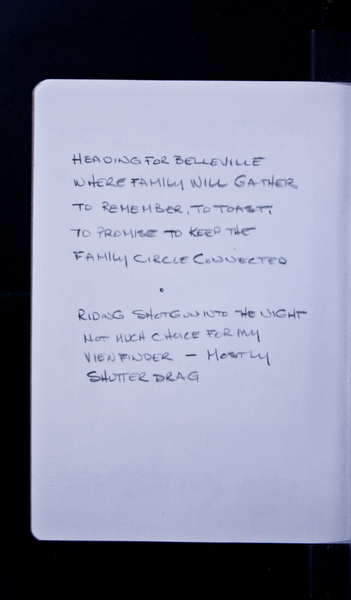 HEADING FOR BELLEVILLE
WHERE FAMILY WILL GATHER
TO REMEMBER, TO TOAST,
TO PROMISE TO KEEP THE
FAMILY CIRCLE CONNECTED
•
RIDING SHOTGUN INTO THE NIGHT
NOT MUCH CHOICE FOR MY
VIEWFINDER — MOSTLY
SHUTTER DRAG